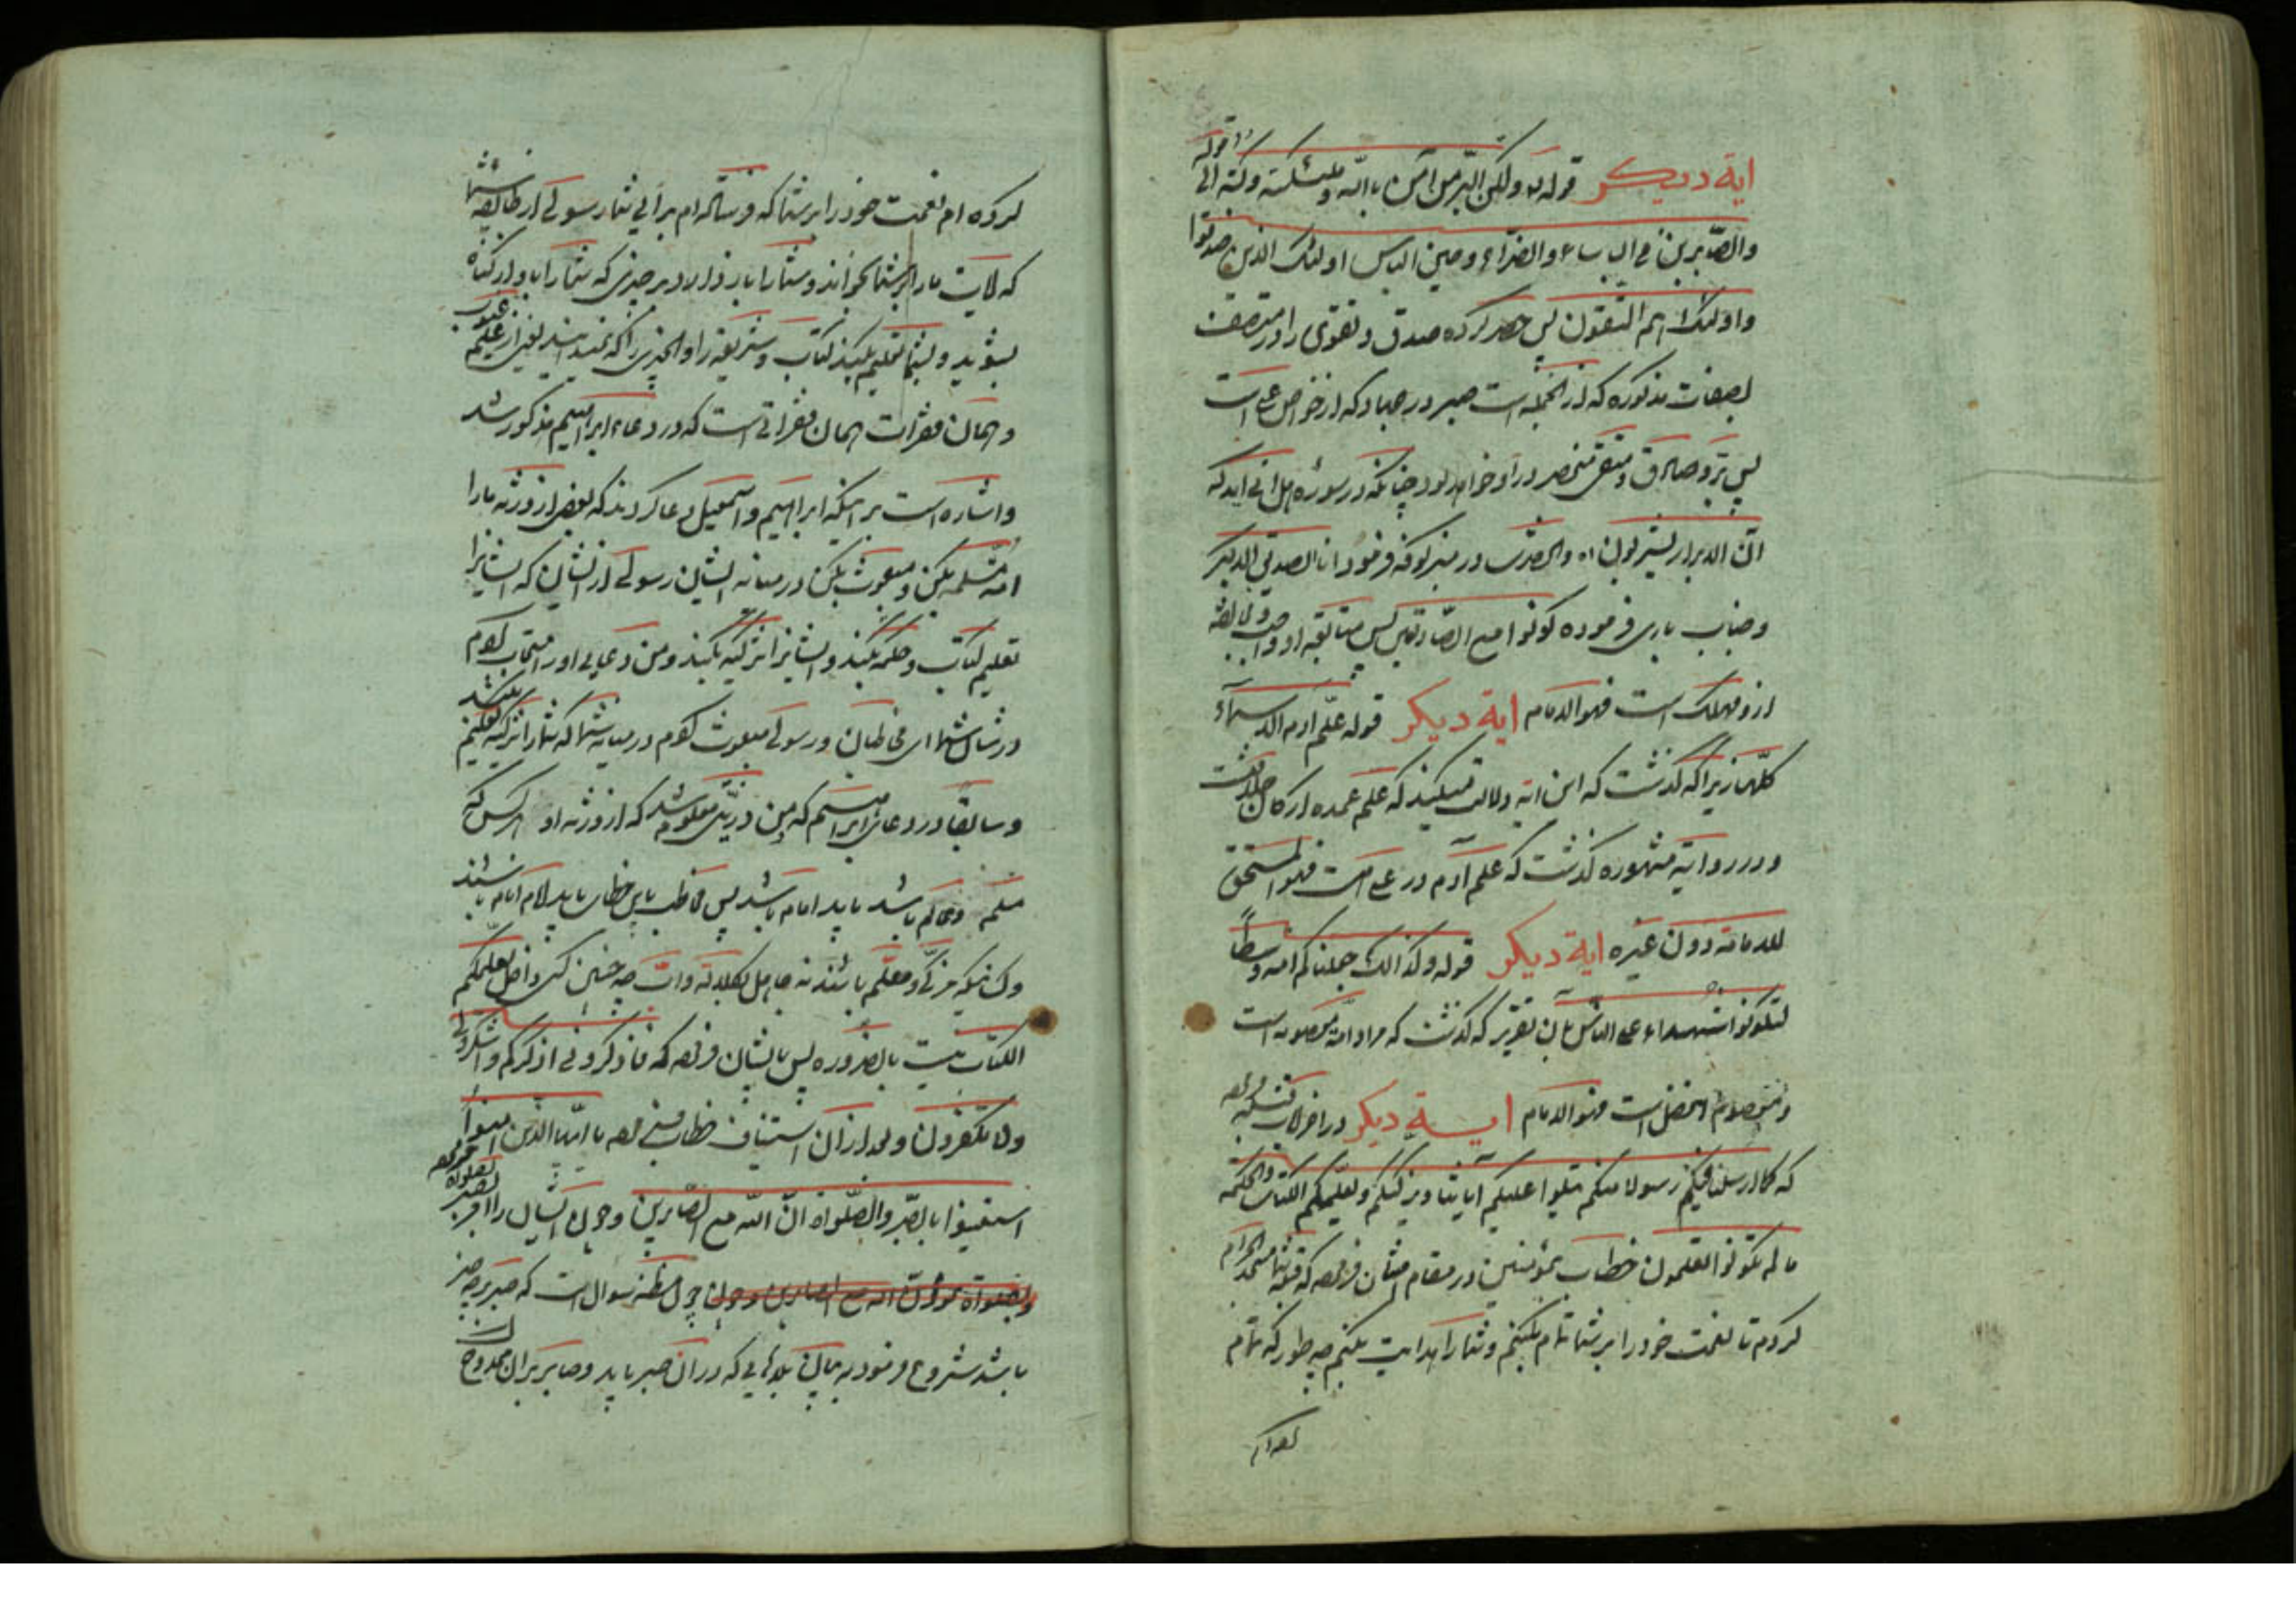 ایة دیکر قوله و لکن البر من آمن بالله و ملئکته و کتبه الی قوله
والصابرین فی الباساء والضراء وحین الباس اولئک الذین صدقوا
واولئک هم المتقون پس حصر کرده صدق و تقوی را در متصف
بصفات مذکوره که از انجمله است صبر در جهاد که از خواص علی است
پس بر و صادق و متقی منحصر در او خواهد بود چنانکه در سوره هل اتی آید که
ان الابرار یشربون اه وانحضرت در منبر کوفه فرمود انا الصدیق الاکبر
وجناب باری فرموده کونوا مع الصادقین پس متابعه او واجب و مخالفه
از و مهلک است فهو الامام ایة دیکر قوله علم ادم الاسماء
کلها زیرا که کذشت که این ایه دلالت میکند که علم عمده ارکان خلافت
و در روایة مشهوره کذشت که علم آدم در علی است فهو المستحق
للامامة دون غیره ایة دیکر قوله وکذالک جعلناکم امة وسطا
لتکونوا شهداء علی الناس بان تقریر که کذشت که مراد ائمه معصومه است
و معصوم افضل است فهو الامام ایة دیکر در اخر
که کما ارسلنا فیکم رسولا منکم یتلوا علیکم آیاتنا ویزکیکم ویعلمکم الکتاب والحکمة
ما لم تکونوا تعلمون خطاب بمؤمنین در مقام امتنان فرموده که قبله شما مسجد الحرام
کردم تا نعمت خود را بر شما تمام بکنم و شما را هدایت بکنم چه طور که تمام
کرده ام
کرده ام نعمت خود را بر شما که فرستاده ام برای شما رسولی از طایفه شما
که آیات ما را بر شما بخواند و شما را باز دارد از چیزی که شما را باو از کناه
بشوید و بشما تعلیم بکند کتاب و شریعة را و انچیزی را که نمیدانید یعنی از علم غیوب
و همان فقرات همان فقراتی است که در دعاء ابراهیم مذکور شد
و اشاره است بر اینکه ابراهیم و اسمعیل دعا کردند که بعض از ذریه ما را
امة مسلمه بکن و مبعوث بکن در میانه ایشان رسولی از ایشان که ایشانرا
تعلیم کتاب و حکمه بکند و ایشانرا تزکیه بکند و من دعای او را مستجاب کردم
در شان شما ای مخاطبان و رسولی مبعوث کردم در میانه شما که شما را تزکیه و تعلیم بکند
و سابقا در دعای ابراهیم که من ذریتی معلوم شد که از ذریه او هر کس که
مسلم و عالم باشد باید امام باشد پس مخاطب باین خطاب باید امام باشند
و کسانیکه مزکی و معلم باشند نه جاهل چه چنین کسی داخل یعلمکم
الکتاب نیست بالضروره پس بایشان فرموده که فاذکرونی اذکرکم واشکروا لی
ولا تکفرون و بعد از آن استیناف خطاب فرموده یا ایها الذین امنوا
استعینوا بالصبر والصلواة ان الله مع الصابرین و چون ایشان را امر بصبر و بصلواة فرموده
وبصلواة نمود ان الله مع الصابرین و چون چون مظنه سوال است که صبر بر چه چیز
باشد شروع فرمود به بیان بلوائی که در آن صبر باید و صابر بر ان ممدوح است